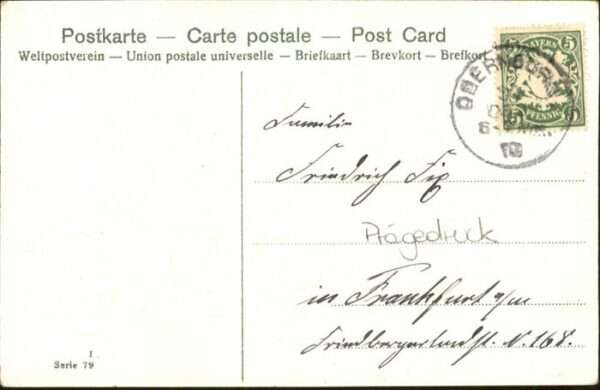 Postkarte — Carte postale — Post Card
Weltpostverein — Union postale universelle — Briefkaart — Brevkort — Brefkort
BAYERN 5
PFENNIG
OBERNBURG
10
Familie
Friedrich Fix
Prägedruck
in Frankfurt a/m
Friedbergerlandst. N. 168.
I
Serie 79